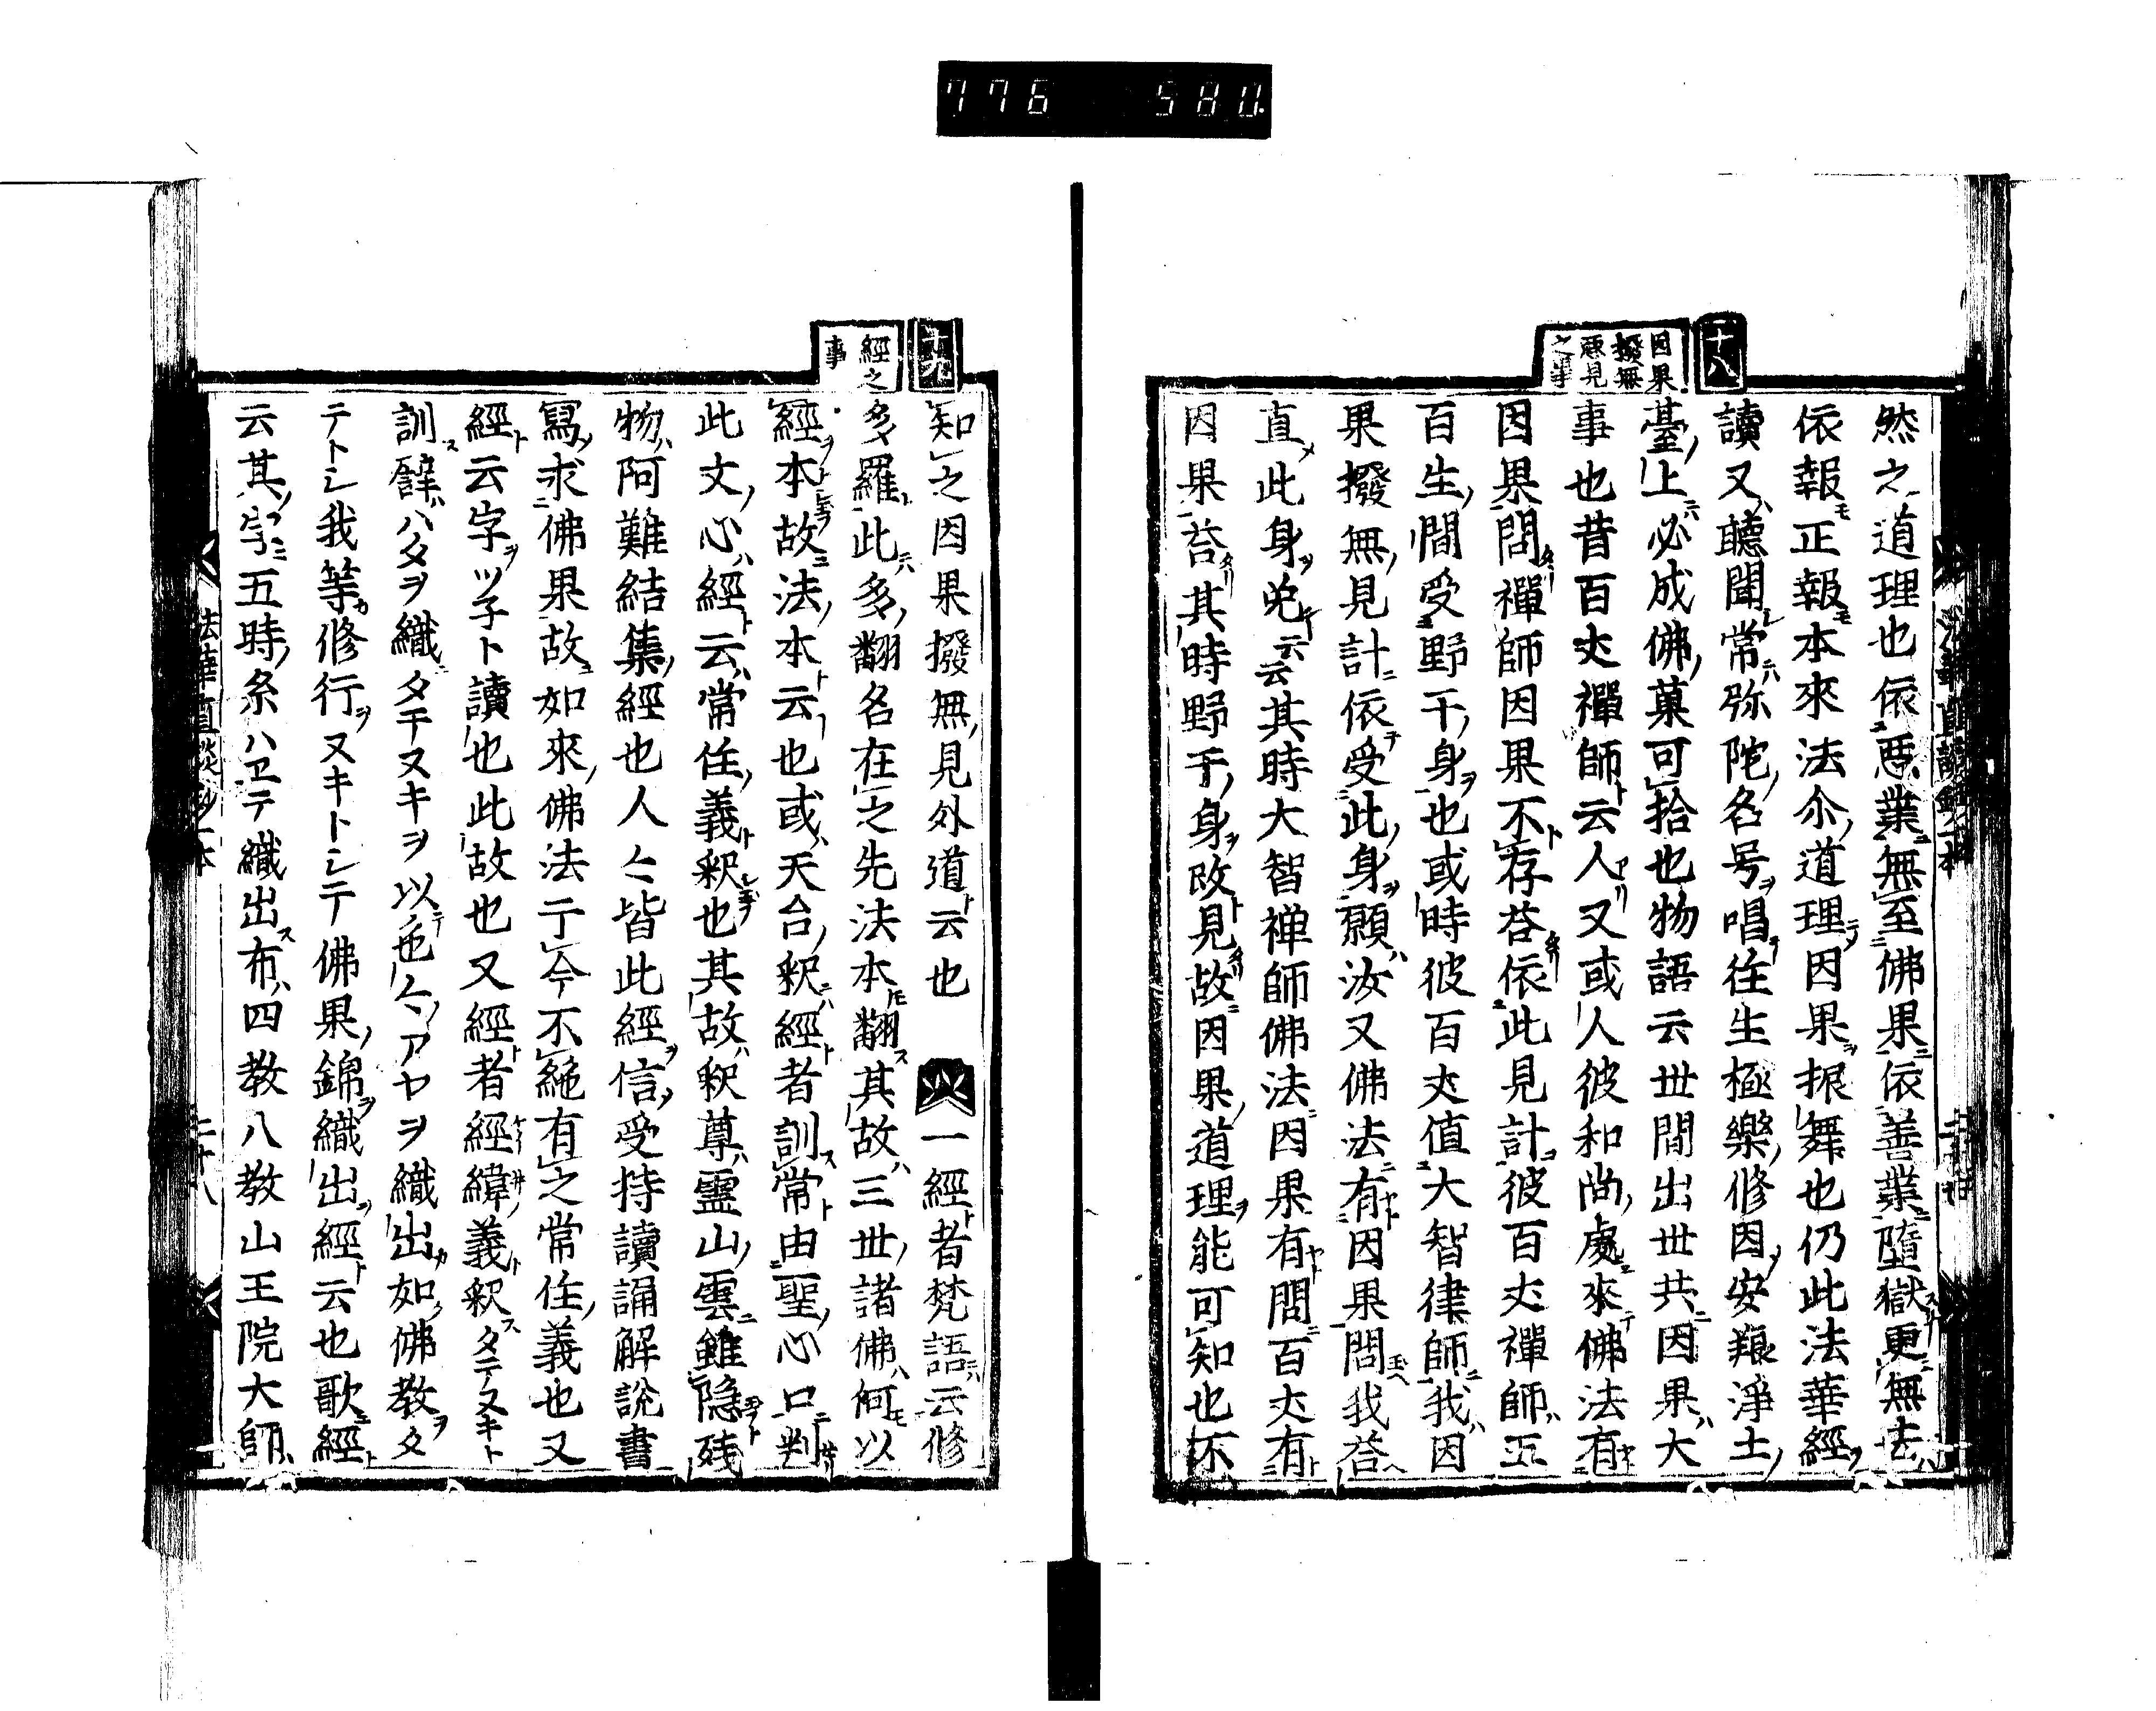 776 580
十八
因果
撥無
悪見
之事
然之道理也依悪業無至佛果依善業墮獄更無法
依報正報本來法尒道理因果振舞也仍此法華經
讀又聽聞常弥陀名号唱往生極樂修因安養淨土
臺上必成佛菓可拾也物語云世間出世共因果大
事也昔百丈禪師云人又或人彼和尚處來佛法有
因果問禪師因果不存答依此見計彼百丈禪師五
百生間受野干身也或時彼百丈値大智律師我因
果撥無見計依受此身願汝又佛法有因果問我答
直此身免云云其時大智禅師佛法因果有問百丈有
因果答其時野干身改見故因果道理能可知也不
知之因果撥無見外道云也 一經者梵語云修
多羅此多翻名在之先法本翻其故三世諸佛何以
經本故法本云也或天台釈經者訓常由聖心口判
此文心經云常住義釈也其故釈尊霊山雲雖隐残
物阿難結集經也人〻皆此經信受持讀誦解說書
寫求佛果故如來佛法于今不絶有之常住義也又
經云字ヲツ子ト讀也此故也又經者經緯義釈タテヌキト
訓譬ハタヲ織タテヌキヲ以色〻アヤヲ織出如佛教タ
テトシ我等修行ヌキトシテ佛果錦織出經云也歌經
云其字五時糸ハヱテ織出布四教八教山王院大師
十九
經之
事
法華直談鈔一本
二十八